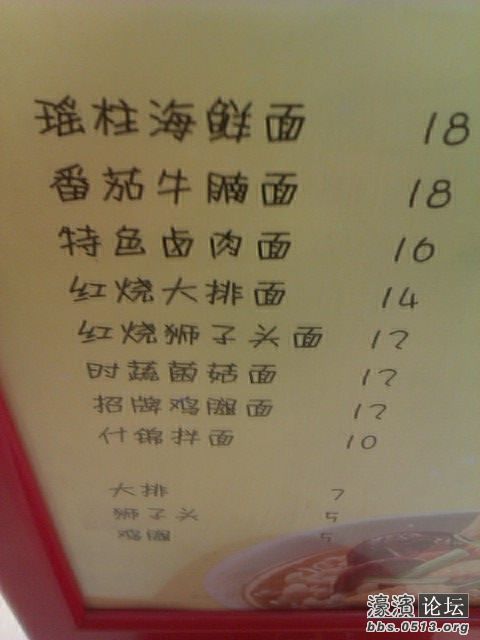 瑶柱海鲜面 18
番茄牛腩面 18
特色卤肉面 16
红烧大排面 14
红烧狮子头面 12
时蔬菌菇面 12
招牌鸡腿面 12
什锦拌面 10
大排 7
狮子头 5
鸡腿 5
濠滨论坛
bbs.0513.org